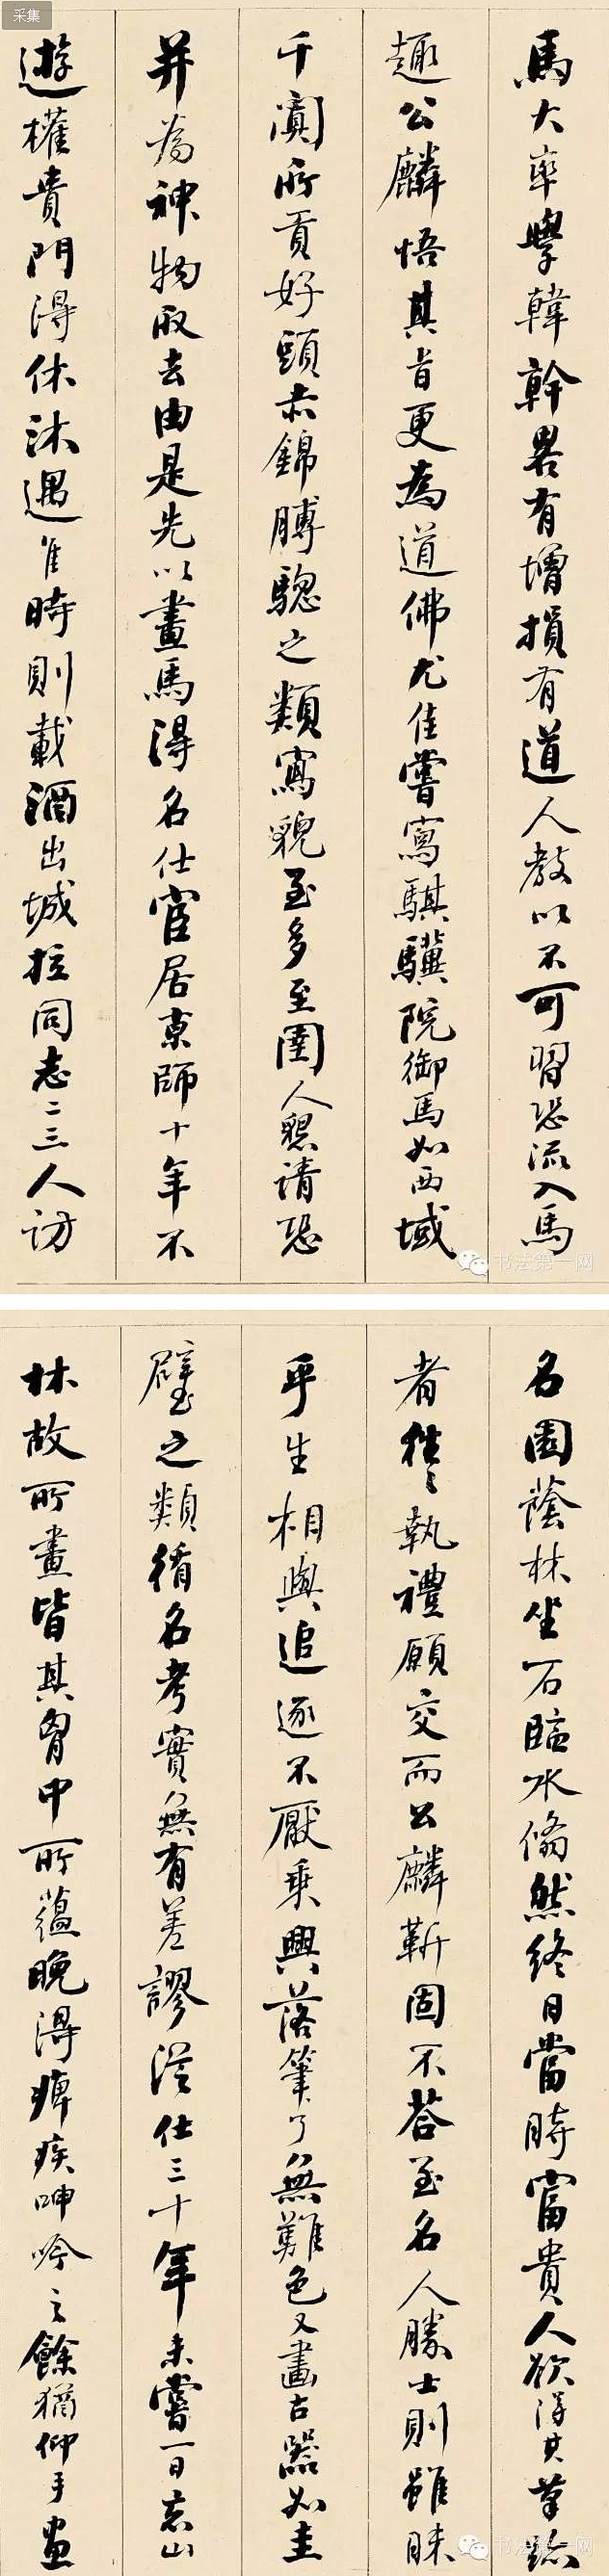 采集
馬大率學韓幹畧有增損有道人教以不可習恐流入馬
趣公麟悟其旨更為道佛尤佳嘗寫騏驥院御馬如西域
于闐所貢好頭赤錦膊驄之類寫貌至多至圉人懇請恐
并為神物取去由是先以畫馬得名仕宦居京師十年不
遊權貴門得休沐遇佳時則載酒出城拉同志二三人訪
书法第一网
名園蔭林坐石臨水翛然終日當時富貴人欲得其筆跡
者往往執禮願交而公麟靳固不答至名人勝士則雖昧
平生相與追逐不厭乘興落筆了無難色又畫古器如圭
璧之類循名考實無有差謬從仕三十年未嘗一日忘山
林故所畫皆其胷中所蘊晚得痺疾呻吟之餘猶仰手畫
书法第一网